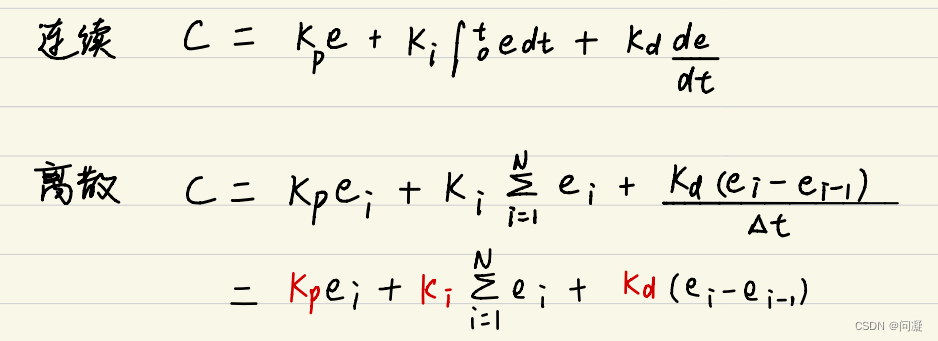 连续 C = Kpe + Ki∫₀ᵗ edt + Kd de/dt
离散 C = Kpei + Ki ∑_{i=1}^{N} ei + Kd(ei - ei-1)/Δt
= Kpei + Ki ∑_{i=1}^{N} ei + Kd(ei - ei-1)
CSDN @问凝